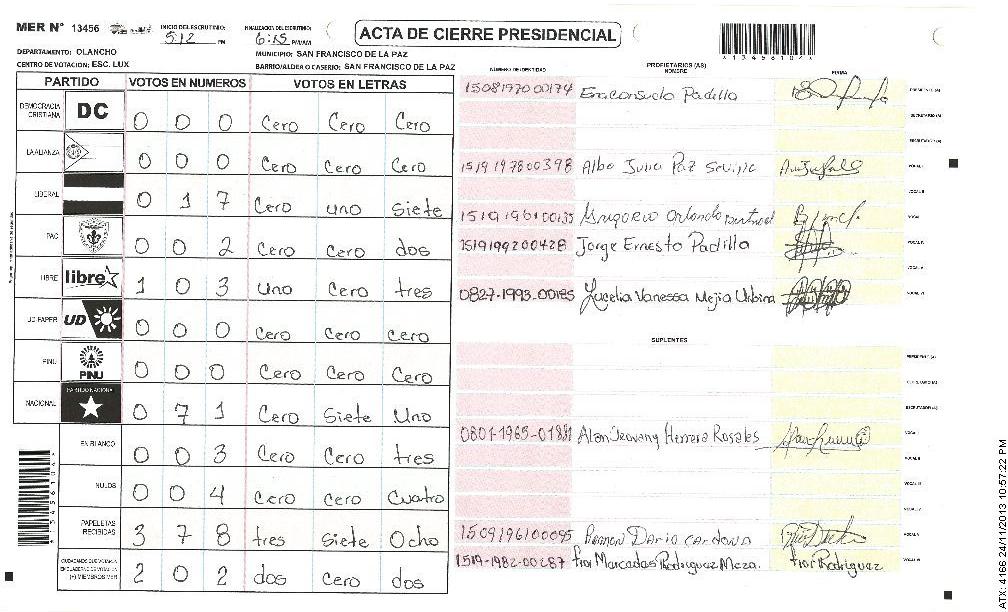 MER N° 13456
INICIO DEL ESCRUTINIO: 5:12 PM
FINALIZACION DEL ESCRUTINIO: 6:15 PM/AM
ACTA DE CIERRE PRESIDENCIAL
*1345610*
DEPARTAMENTO: OLANCHO
MUNICIPIO: SAN FRANCISCO DE LA PAZ
CENTRO DE VOTACION: ESC. LUX
BARRIO/ALDEA O CASERIO: SAN FRANCISCO DE LA PAZ
PARTIDO VOTOS EN NUMEROS VOTOS EN LETRAS
DEMOCRACIA CRISTIANA DC 0 0 0 Cero Cero Cero
LA ALIANZA 0 0 0 Cero Cero Cero
LIBERAL 0 1 7 Cero uno Siete
PAC 0 0 2 Cero Cero dos
LIBRE libre 1 0 3 uno Cero tres
UD FAPER UD 0 0 0 Cero Cero Cero
PINU PINU 0 0 0 Cero Cero Cero
NACIONAL PARTIDO NACIONAL 0 7 1 Cero Siete Uno
EN BLANCO 0 0 3 Cero Cero tres
NULOS 0 0 4 Cero Cero Cuatro
PAPELETAS RECIBIDAS 3 7 8 tres Siete Ocho
2 0 2 dos Cero dos
NUMERO DE IDENTIDAD PROPIETARIOS (AS) NOMBRE FIRMA
1508197000174 Padilla PRESIDENTE (A)
SECRETARIO (A)
ESCRUTADOR (A)
1519197800398 Alba Julia Paz VOCAL I
VOCAL II
Gregorio Orlando VOCAL
1519199200428 Jorge Ernesto Padilla VOCAL IV
VOCAL V
0827-1993-00185 Lucelia Vanessa Mejia Urbina VOCAL VI
SUPLENTES
PRESIDENTE (A)
SECRETARIO (A)
ESCRUTADOR (A)
Alan Herrera Rosales VOCAL
VOCAL II
VOCAL III
VOCAL IV
1509196100095 Ramon Dario Cardona VOCAL V
1519-1982-00287 flor Mercedes Rodriguez Meza. flor Rodriguez VOCAL VI
ATX: 4166 24/11/2013 10:57:22 PM